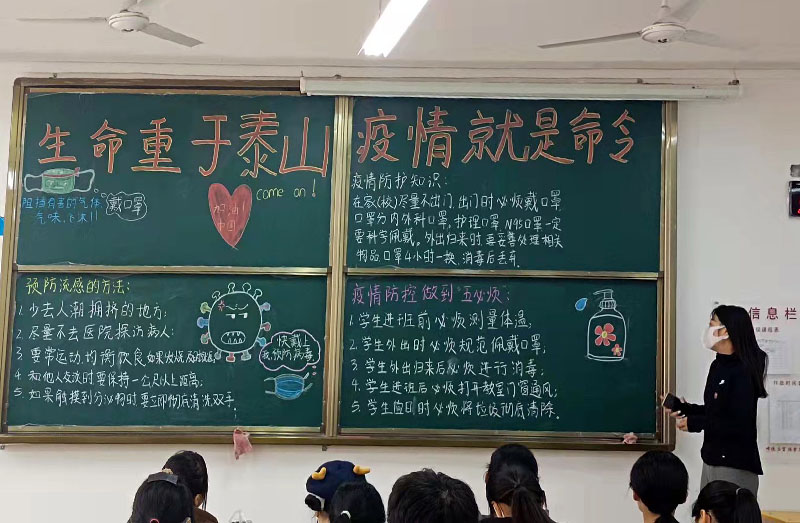 生命重于泰山
疫情就是命令
阻挡有害的气体
气味、飞沫!!
戴口罩
加油
中国
come on!
疫情防护知识:
在家(校)尽量不出门,出门时必须戴口罩,
口罩分内外科口罩,护理口罩,N95口罩一定
要科学佩戴。外出归来时要妥善处理相关
物品口罩4小时一换,消毒后丢弃.
预防流感的方法:
1. 少去人潮拥挤的地方;
2. 尽量不去医院探访病人;
3. 要常运动,均衡饮食,如果发烧
4. 和他人交谈时要保持一公尺以上距离;
5. 如果触摸到分泌物时要立即彻底清洗双手.
快戴上
我预防病毒
疫情防控做到“五必须”:
1. 学生进班前必须测量体温;
2. 学生外出时必须规范佩戴口罩;
3. 学生外出归来后必须进行消毒;
4. 学生进班后必须打开教室门窗通风;
5. 学生应日时必须将垃圾彻底清除.
信息栏